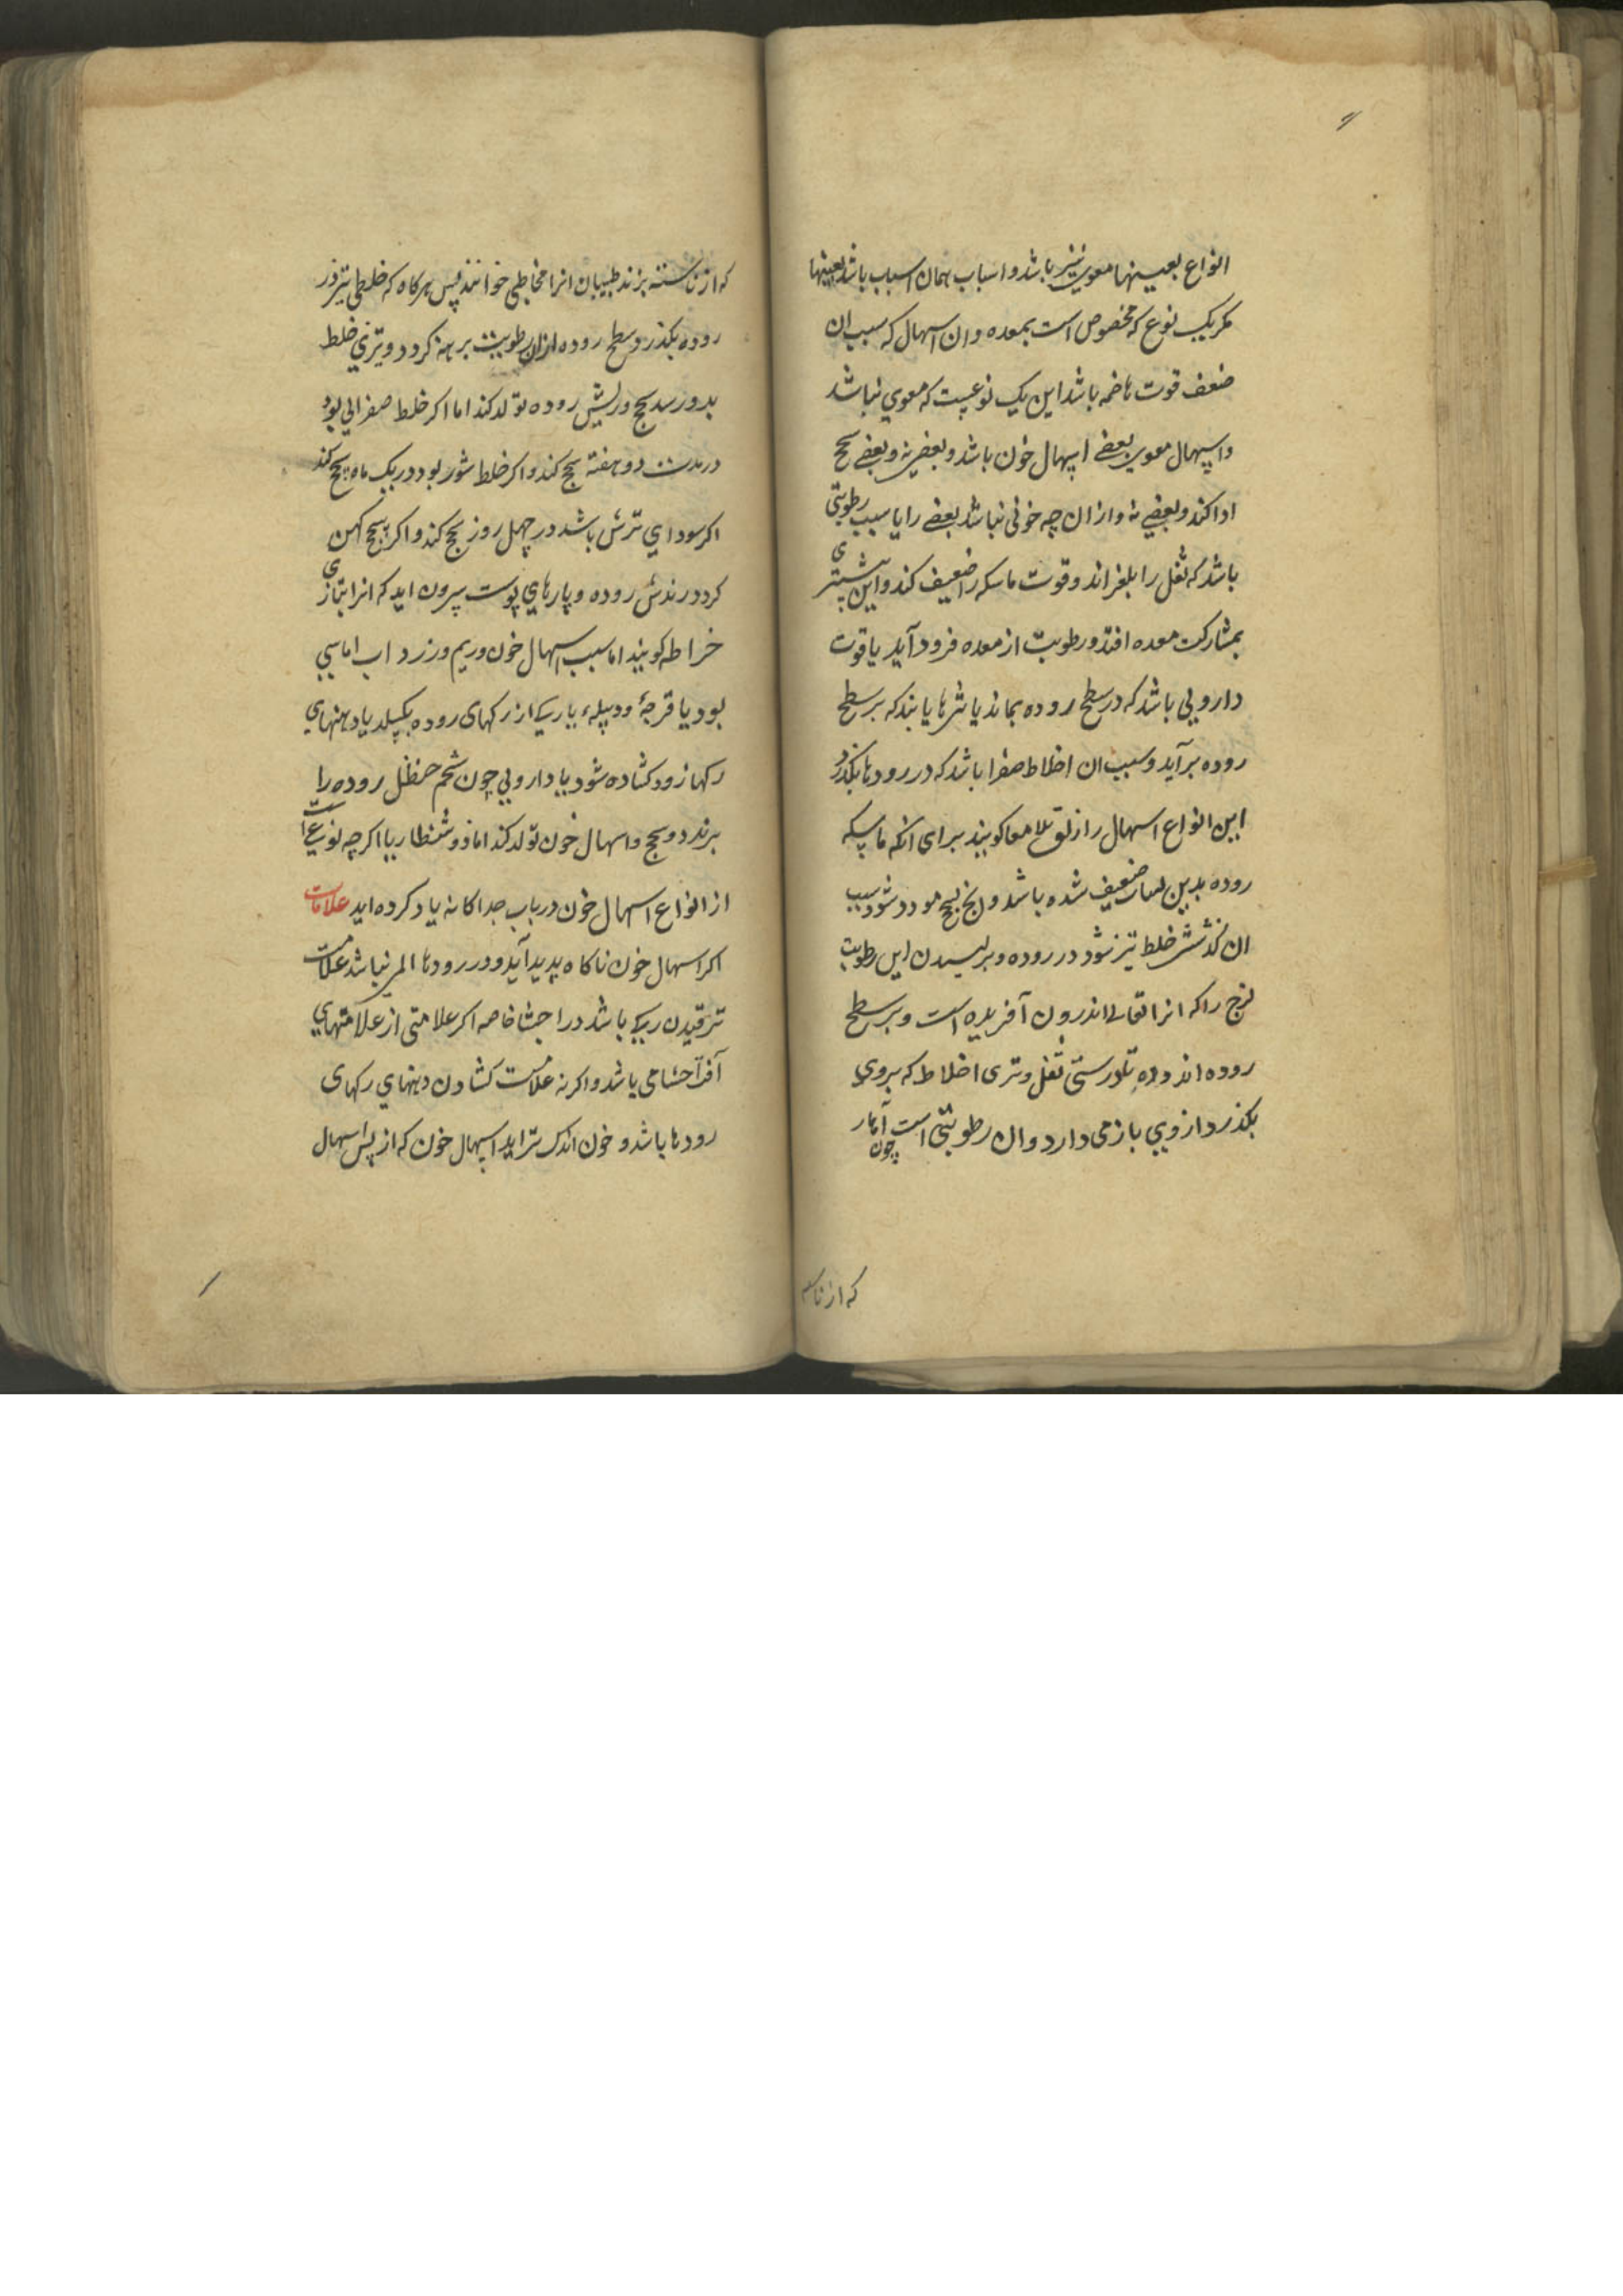 انواع بعینها معوی نیز باشد و اسباب همان اسباب باشد بعینها
مکر یک نوع که مخصوص است بمعده و ان اسهال که سبب ان
ضعف قوت هاضمه باشد این یک نوعیست که معوی نباشد
و اسهال معوی بعضی اسهال خون باشد و بعضی نه و بعضی سحج
ادا کند و بعضی نه و از ان چه خونی نباشد بعضی را یا سبب رطوبتی
باشد که ثفل را بلغزاند و قوت ماسکه را ضعیف کند و این بیشتری
بمشارکت معده افتد و رطوبت از معده فرود آید یا قوت
دارویی باشد که در سطح روده بماند یا بثرها یابند که بر سطح
روده برآید و سبب ان اخلاط صفرا باشد که در رودها بکذرد
این انواع اسهال را زلق الامعا کویند برای انکه ماسکه
روده بدین ضعیف شده باشد و سحج شود سبب
ان کذشتن خلط تیز شود در روده و برلیسیدن این رطوبت
لزج را که انرا تعالی اندرون آفریده است و بر سطح
روده اندوده ثفل و تری اخلاط که بروی
بکذرد از ویی باز می دارد و ان رطوبتی است چون آهار
که از ناسه
که از ناسته پزند طبیبان انرا مخاطی خوانند پس هرکاه که خلطی تیز در
روده بکذرد و سطح روده ازان رطوبت برهنه کردد و تیزی خلط
بدو رسد سحج و ریش روده تولد کند اما اکر خلط صفرایی بود
در مدت دو هفته سحج کند و اکر خلط شور بود در یک ماه سحج کند
اکر سودای ترش باشد در چهل روز سحج کند و اکر سحج کهن
کردد رندش روده و پارهای پوست بیرون اید که انرا بتازی
خراطه کویند اما سبب اسهال خون و ریم و زرد اب اماسی
بود یا قرحهٔ و دبیلهء یا رکی از رکهای روده بکسلد یا دهنهای
رکها زود کشاده شود یا دارویی چون شحم حنظل روده را
برندد و سحج و اسهال خون تولد کند اما ذوسنطاریا اکر چه نوعی است
از انواع اسهال خون در باب جداکانه یاد کرده اید علامات
اکر اسهال خون ناکاه پدید آید و در رودها المی نباشد علامت
ترقیدن رکی باشد در احشا خاصه اکر علامتی از علامتهای
آفت احشا می باشد و اکر نه علامت کشادن دهنهای رکهای
رودها باشد و خون اندک تر اید اسهال خون که از پس اسهال